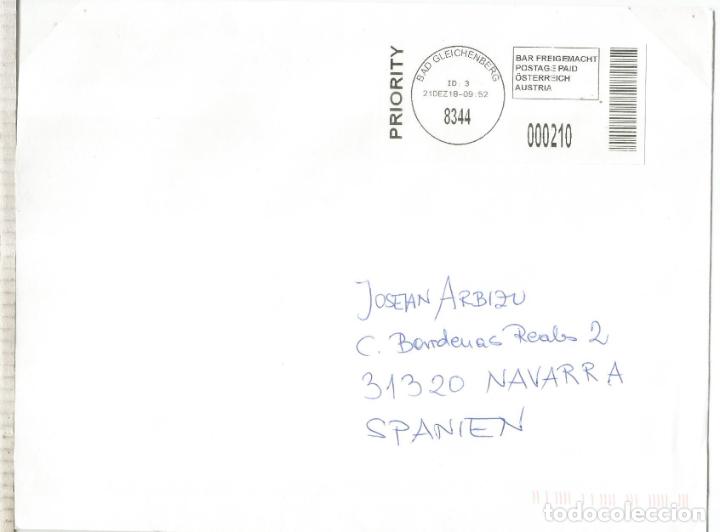 PRIORITY
BAD GLEICHENBERG
ID. 3
21DEZ18-09.52
8344
BAR FREIGEMACHT
POSTAGE PAID
ÖSTERREICH
AUSTRIA
000210
JOSEJAN ARBIZU
C. Bardenas Reales 2
31320 NAVARRA
SPANIEN
todocoleccion